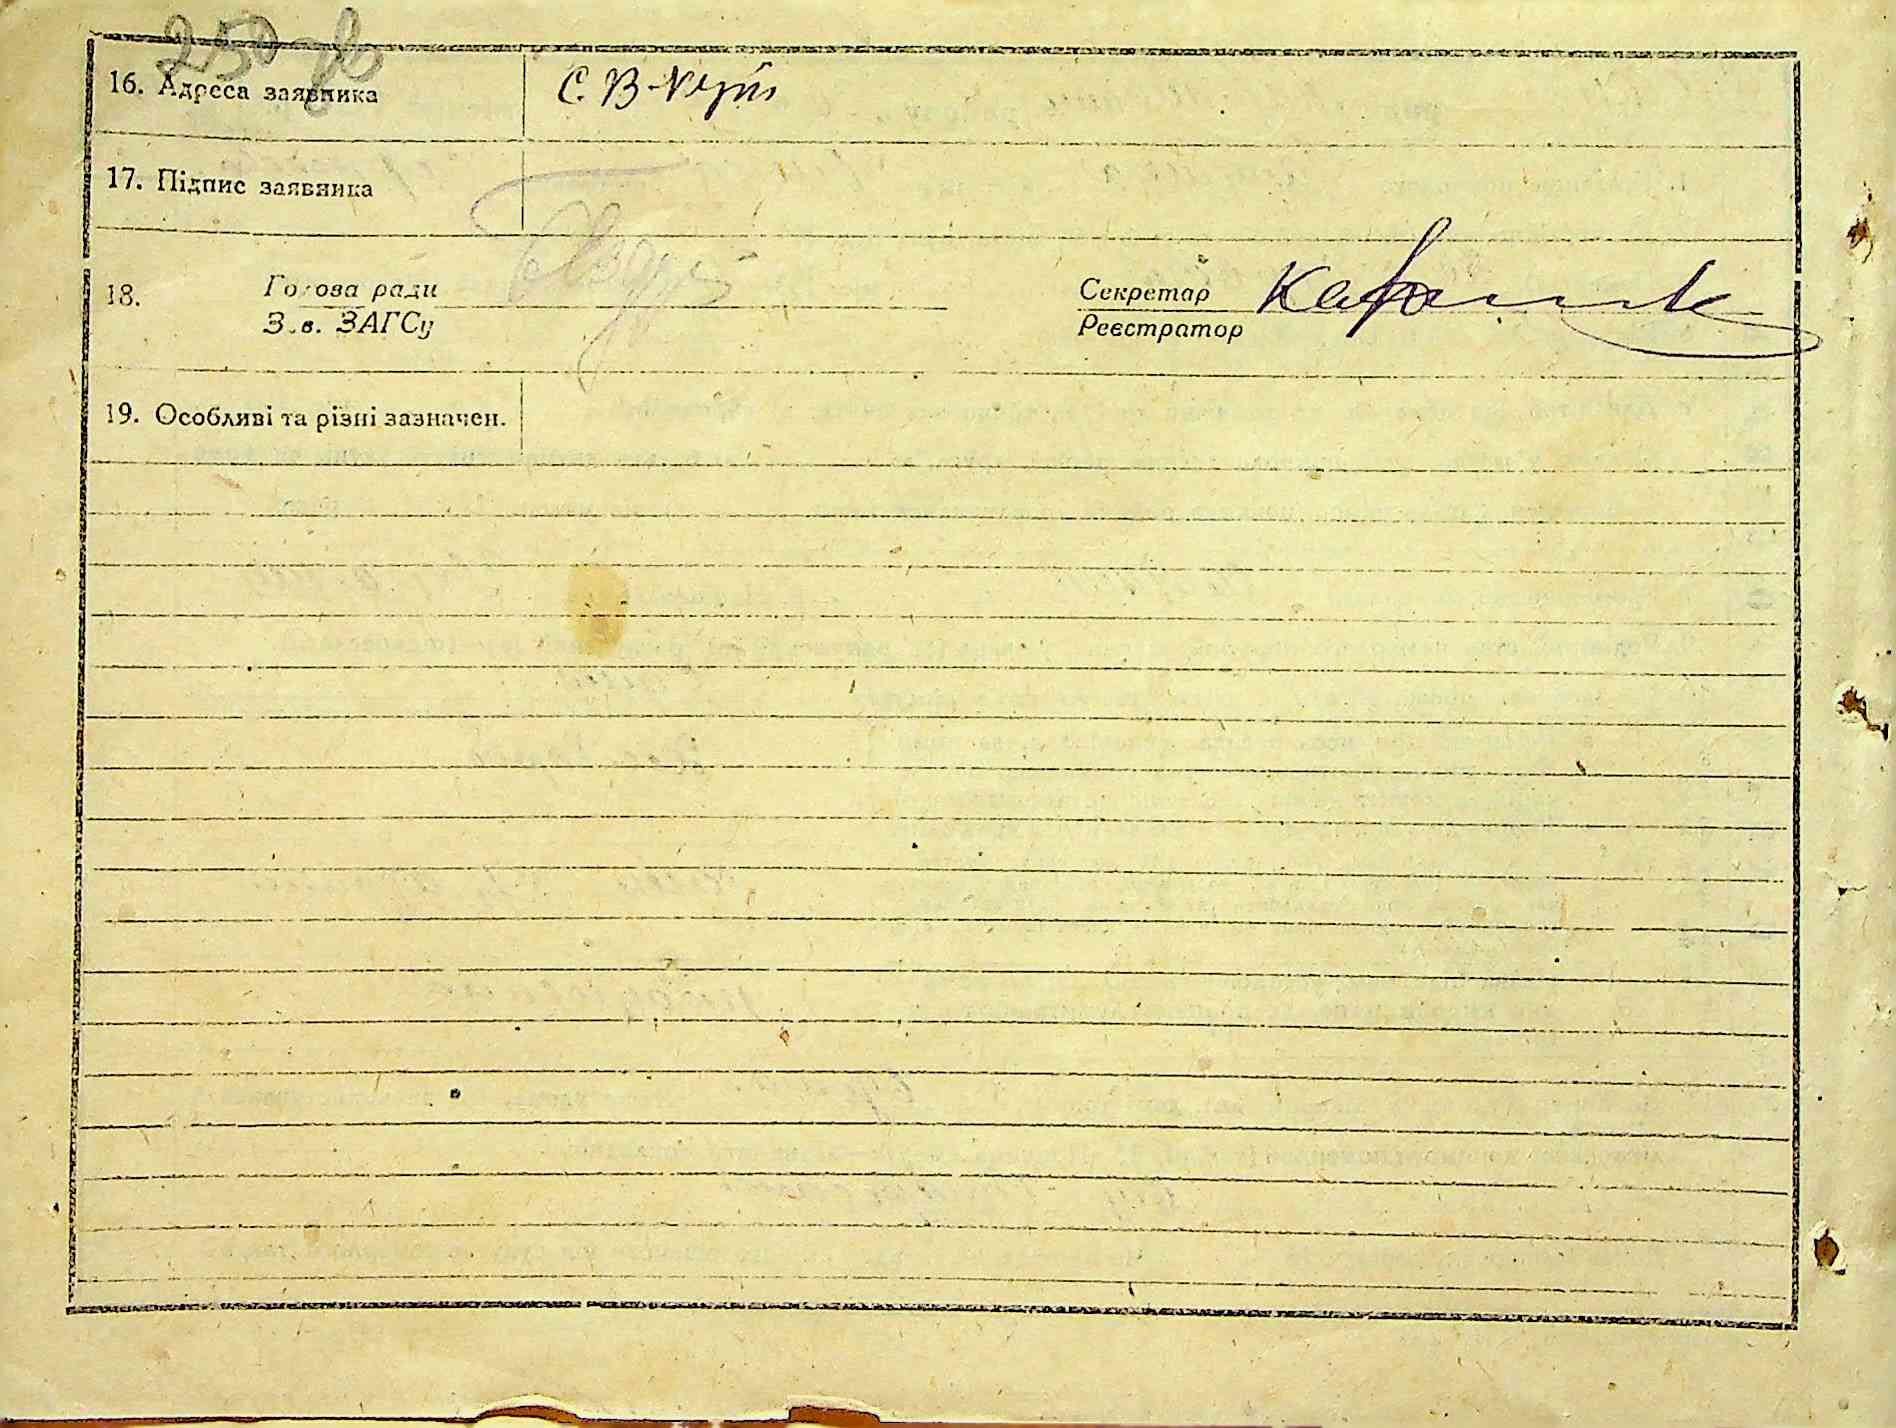 250 зв
16. Адреса заявника С. В-Кут
17. Підпис заявника
18. Голова ради Секретар
Зав. ЗАГСу Реєстратор
19. Особливі та різні зазначен.